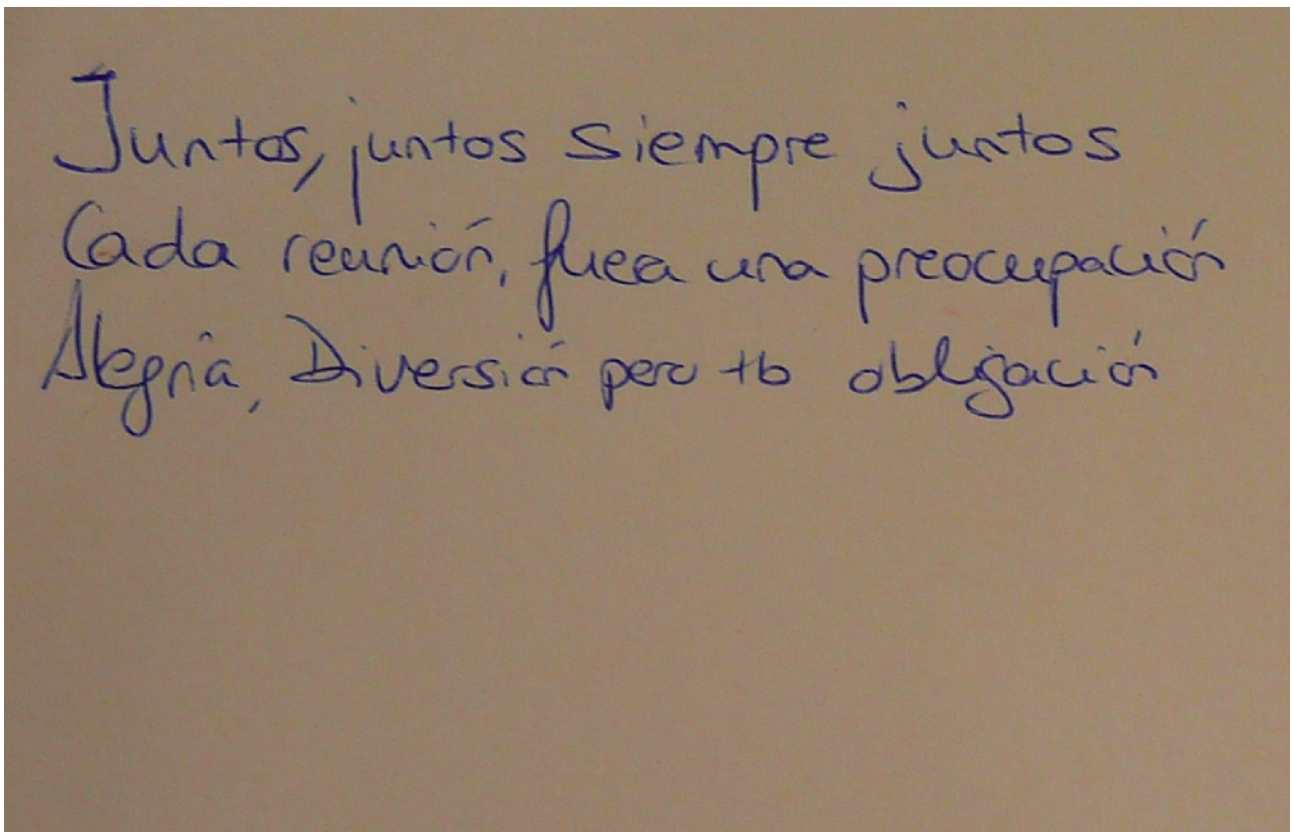 Juntos, juntos siempre juntos
Cada reunión, fuera una preocupación
Alegría, Diversión pero tb obligación